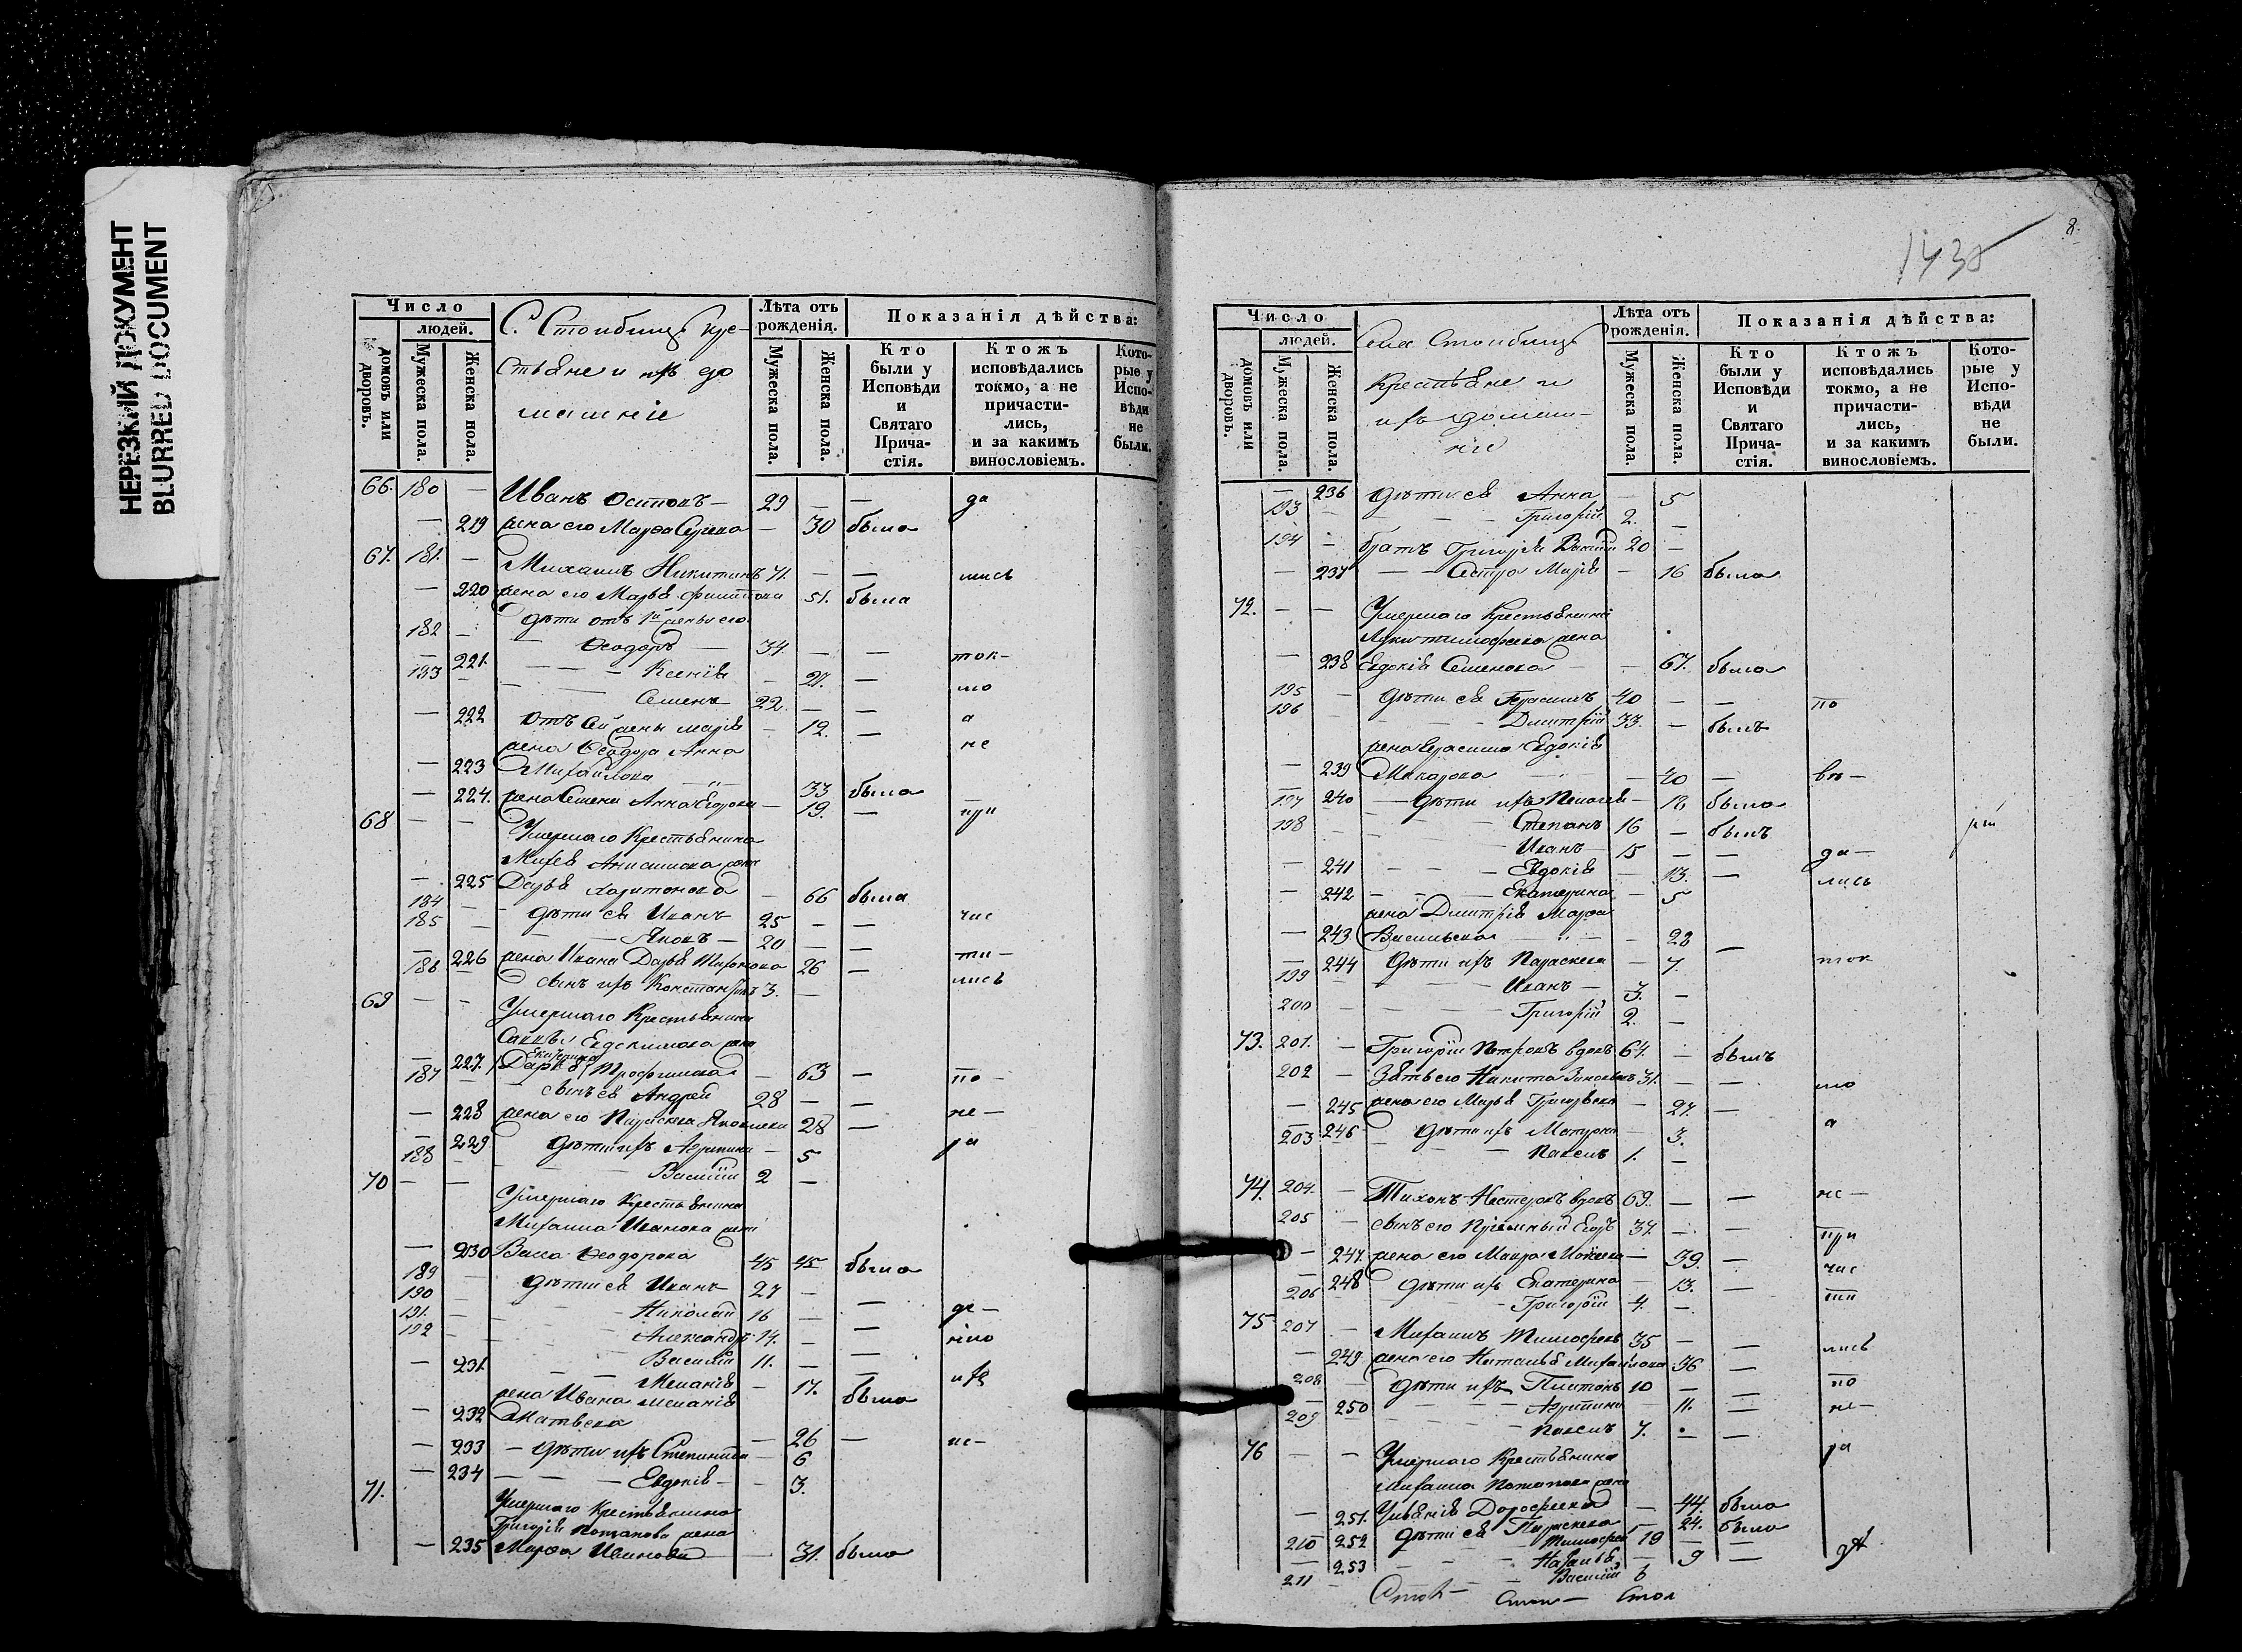 НЕРЕЗКИЙ ДОКУМЕНТ
BLURRED DOCUMENT
Число
людей.
домовъ или дворовъ.
Мужеска пола.
Женска пола.
С. Стоибищъ кре-
стьяне и ихъ до
машніе
Лѣта отъ рожденія.
Мужеска пола.
Женска пола.
Показанія дѣйства:
Кто были у Исповѣди и Святаго Прича-стія.
Ктожъ исповѣдались токмо, а не причасти-лись, и за какимъ винословіемъ.
Кото-рые у Испо-вѣди не были.
66. 180 — Иванъ Осиповъ — 29 — — да
— 219 жена его Марѳа — 30 была
67. 181. — Михаилъ Никитинъ 71. — — лись
— 220 жена его Марья Филиппова 51. была
дѣти отъ 1й жены его
182 — Ѳеодоръ — 34. — — ток-
— 221. — Ксенія — 27. — мо
183 — Семенъ 22. — — а
— 222 Отъ сей жены Марія — 12. — не
жена Ѳеодора Анна
— 223 Михайлова — 33 была
— 224. жена Семена Анна Егорова — 19. — при
68 — — Умершаго Крестьянина
Михея Анисимова жена
— 225 Дарья Харитонова — 66 была
184 — дѣти ея Иванъ 25 — — час
185 — Яковъ — 20 — —
— 226 жена Ивана Дарья 26 — ти-
186 — сынъ ихъ Константинъ 3. — лись
69 — — Умершаго Крестьянина
Саввы Евдокимова жена
Екатерина
— 227. Дарья Трофимова — 63 — по-
187 — сынъ ея Андрей 28 — —
— 228 жена его Параскева Яковлева 28 — не-
— 229 дѣти ихъ Агрипина — 5 ра
188 — Василій 2 —
70 — — Умершаго Крестьянина
Михаила Иванова жена
— 230 Васса Ѳеодорова 45 45 была
189 — дѣти ея Иванъ 27 —
190 — Николай 16 — — де-
191. — Александръ 14. — — нію
192 — Василій 11. — —
— 231. — Меланія — 17. была ихъ
жена Ивана Меланія
— 232 Матвѣева — 26 — не-
— 233 — дѣти ихъ Степанида — 6
— 234 — Евдокія — 3.
71. Умершаго Крестьянина
Григорія Потапова жена
— 235 Марѳа Иванова — 31. была
8.
143
Число
людей.
домовъ или дворовъ.
Мужеска пола.
Женска пола.
Села Стоибищъ
крестьяне и
ихъ домаш-
ніе
Лѣта отъ рожденія.
Мужеска пола.
Женска пола.
Показанія дѣйства:
Кто были у Исповѣди и Святаго Прича-стія.
Ктожъ исповѣдались токмо, а не причасти-лись, и за какимъ винословіемъ.
Кото-рые у Испо-вѣди не были.
— 236 дѣти ея Анна — 5
193 — Григорій 2. —
194 — братъ Григорія Василій 20 —
— 237 — Сестра Марія — 16 была
72. — — Умершаго Крестьянина
Луки Тимофеева жена
— 238 Евдокія Семенова — 67. была
195 — дѣти ея Герасимъ 40 — — по
196 — Дмитрій 33. — былъ
жена Герасима Евдокія
— 239 Макарова — 40 — вѣ-
— 240 — дѣти ихъ Пелагея — 18 была
197 — Степанъ 16 — былъ
198 — Иванъ 15 — — да-
— 241 — Евдокія — 13. — лись
— 242 — Екатерина — 5
жена Дмитрія Марѳа
— 243 Васильева — 28 —
— 244 дѣти ихъ Параскева — 7. ток
199 — Иванъ — 3. —
200 — Григорій 2. —
73. 201. — Григорій Петровъ вдовъ 64. — былъ
202 — Зять его Никита 31. — — мо
— 245 жена его Марья Григорьева — 27. —
— 246 дѣти ихъ Матрона — 3. а
203 — Павелъ 1. —
74. 204. — Тихонъ Нестеровъ вдовъ 69. — — не-
205 — сынъ его Пріемный Егоръ 37. — — при
— 247. жена его Мавра — 39. — час
— 248 дѣти ихъ Екатерина — 13. — ти
206 — Григорій 4. —
75 207 — Михаилъ Тимофеевъ 35 — — лись
— 249 жена его Наталья Михайлова 36 —
208 — дѣти ихъ Платонъ 10 — — по
— 250 — Агрипина — 11. — не-
209 — Павелъ 7. — —
76 — — Умершаго Крестьянина ра
Михаила Потапова жена
— 251. Ульянія Дороѳеева — 44. была
— 252 дѣти ея Параскева — 24. была
210 — Тимофей 19 — —
— 253 — Наталья — 9 —
211 — Василій 6